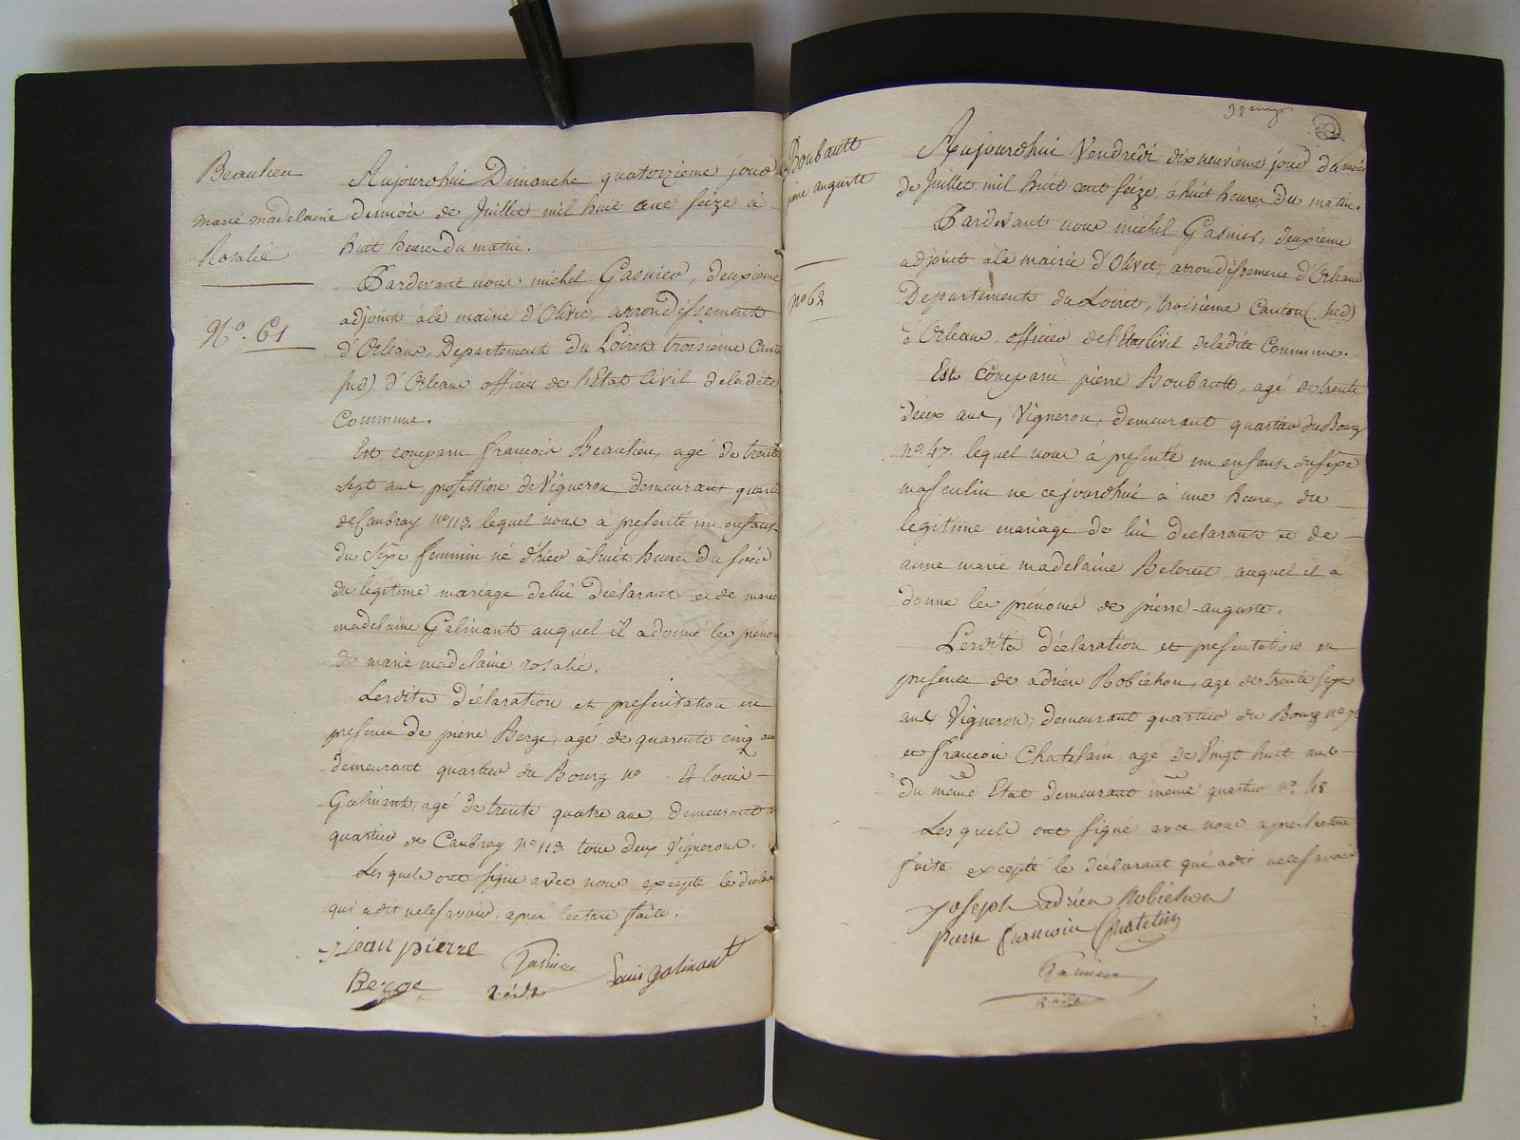 Beaulieu
marie madelaine
Rosalie
N.o 61
Aujourdhui Dimanche quatorzieme jour
dumois de Juillet mil huit cent seize à
huit heures du matin.
Pardevant nous michel Gasnier, deuxieme
adjoint àla mairie d'Olivet, arrondissement
d'Orleans, Departement du Loiret troisieme Canton
sud) d'Orleans officier de l'Etat Civil deladite
Commune.
Est comparu françois Beaulieu, agé de trente
sept ans, profession de Vigneron demeurant quartier
de Caubray no 113. lequel nous à presenté un enfant
du sexe feminin né d'hier à huit heures du soir
du legitime mariage delui Déclarant et de marie
madelaine Galinant auquel il adonné les prénoms
de marie madelaine rosalie.
Lesdites Déclaration et presentation en
presence de pierre Berge, agé de quarente cinq ans
demeurant quartier du Bourg no Et louis
Galinant, agé de trente quatre ans, demeurant
quartier de Caubray no 113 tous deux Vignerons.
Lesquels ont signé avec nous excepté le déclarant
qui adit nelesavoir, après lecture faite.
jean pierre
Berge
Gasnier
adjt
Louis galinant
Boubault
pierre auguste
no 62
Aujourdhui Vendredi dixneuvieme jour du mois
de Juillet mil huit cent seize, à huit heures du matin.
Pardevant nous michel Gasnier, deuxieme
adjoint àla mairie d'Olivet, arrondissement d'Orleans
Departement du Loiret, troisieme Canton (sud)
d'Orleans, officier del'Etat Civil deladite Commune.
Est comparu pierre Boubault, agé de trente
deux ans, Vigneron, demeurant quartier du Bourg
no 47. lequel nous à presenté un enfant dusexe
masculin né cejourdhui à une heure, du
legitime mariage de lui declarant et de
anne marie madelaine Belouet, auquel il à
donné les prénoms de pierre-auguste.
Lesdites déclaration et presentation en
presence de adrien Robichon, agé de trente sept
ans Vigneron, demeurant quartier du Bourg no
et françois Chatelain agé de Vingt huit ans
du même Etat demeurant même quartier no. 48
Lesquels ont signé avec nous après lecture
faite excepté le déclarant qui adit nelesavoir
joseph adrien Robichon
pierre francois Chatelin
Gasnier
adjt